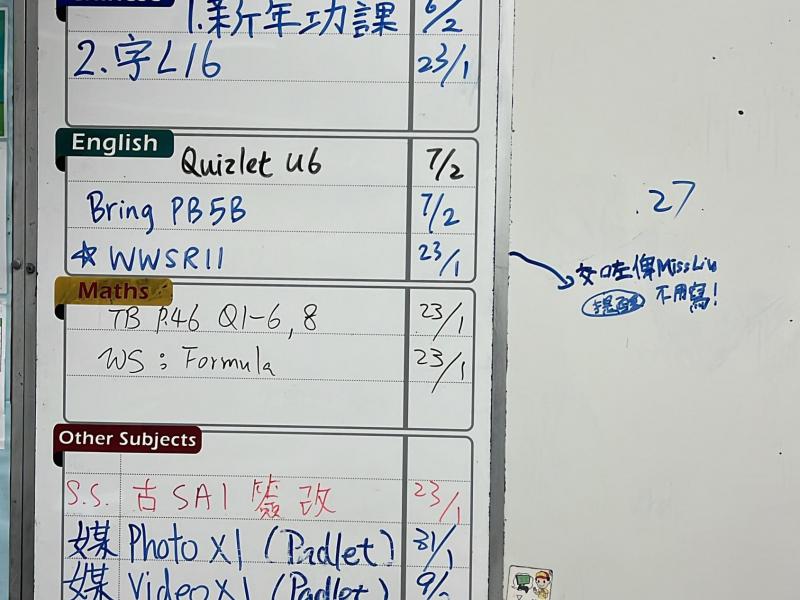 1.新年功課 6/2
2.字L16 23/1
English
Quizlet U6 7/2
Bring PB5B 7/2
☆ WWSR11 23/1
Maths
TB P.46 Q1-6, 8 23/1
WS : Formula 23/1
Other Subjects
S.S. 古 SA1 簽改 23/1
媒 Photo x1 (Padlet) 31/1
媒 Video x1 (Padlet) 9/2
.27
交咗俾Miss Liu
提醒 不用寫!